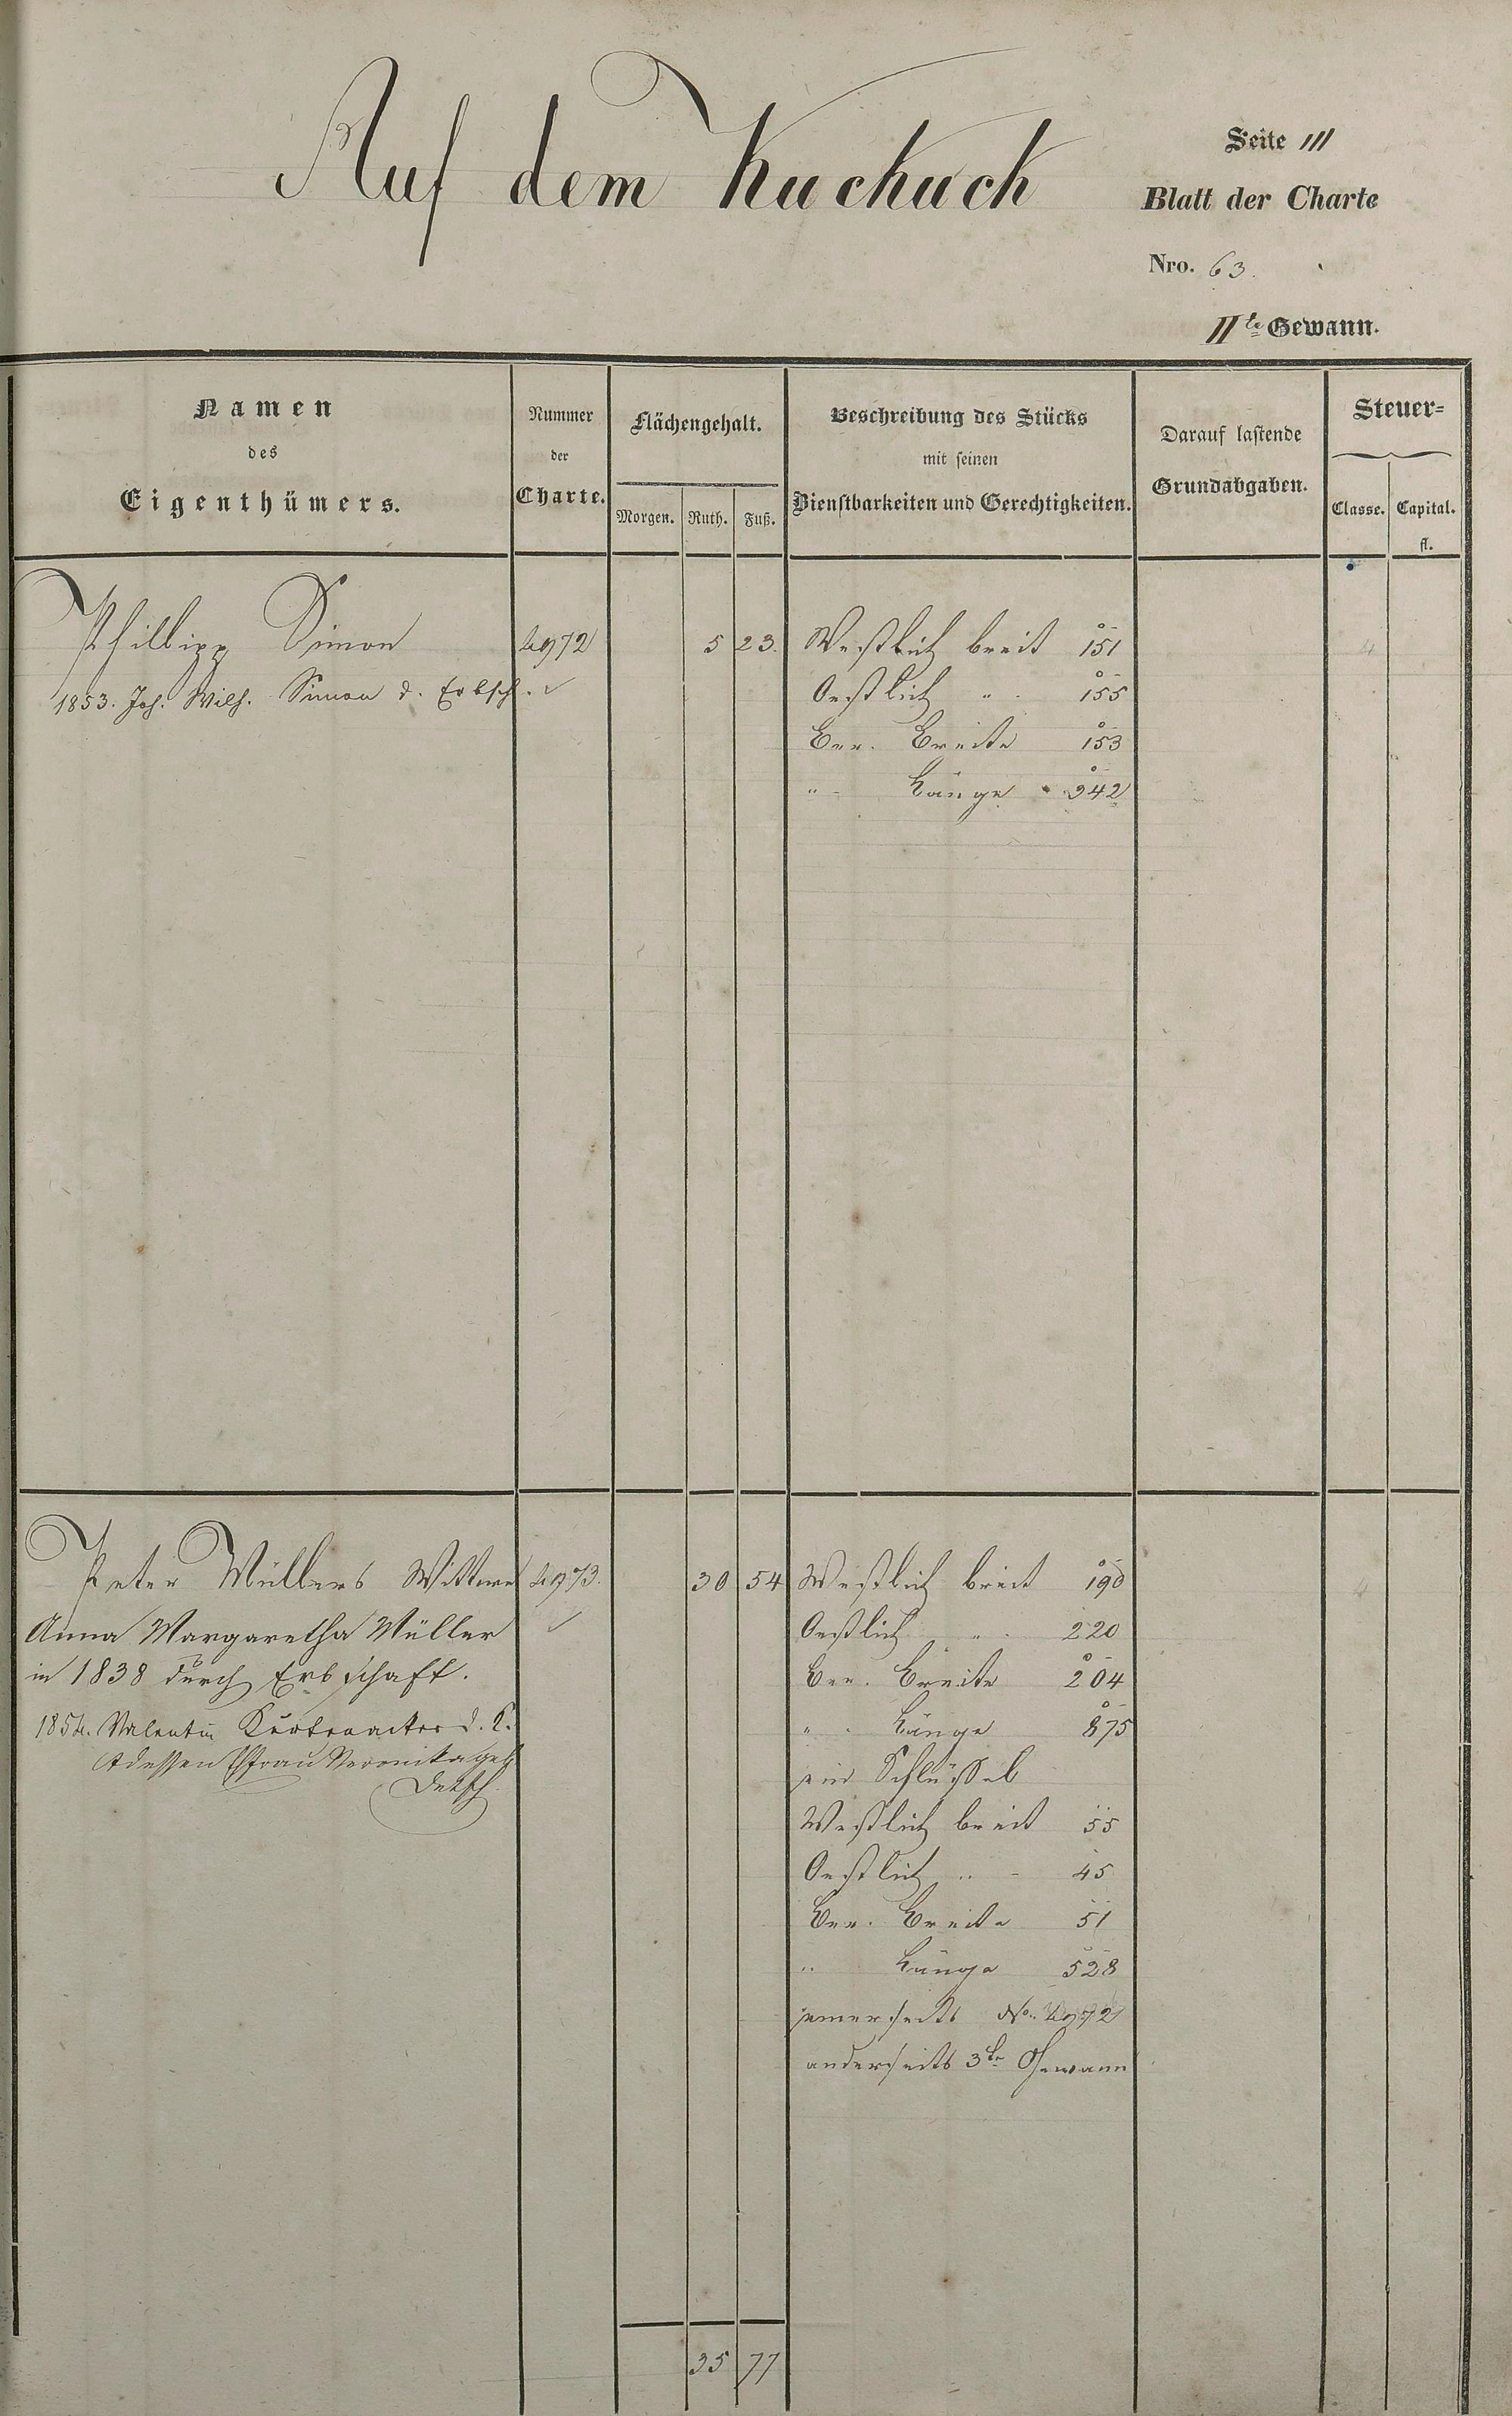 Auf dem Kuckuck
Seite 111
Blatt der Charte
Nro. 63.
IIte Gewann.
Namen
des
Eigenthümers.
Nummer
der
Charte.
Flächengehalt.
Morgen. Ruth. Fuß.
Beschreibung des Stücks
mit seinen
Dienstbarkeiten und Gerechtigkeiten.
Darauf lastende
Grundabgaben.
Steuer-
Classe. Capital.
fl.
Phillipp Simon 4972 5 23. Westlich breit 151 4
1853. Joh. Wilh. Simon d. Erbsch. ✓ Oestlich " 155
Ber. Breite 153
" Länge 342
Peter Müllers Wittwe 4973. 30 54 Westlich breit 190 4
Anna Margaretha Müller ✓ Oestlich " 220
in 1838 durch Erbschaft. Ber. Breite 204
1854. Valentin d. K. " Länge 875
Adessen Ehfrau Veronika geb ein Schlüssel
Detsch.
Westlich breit 55
Oestlich " 45
Ber. Breite 51
" Länge 528
einerseits No. 4972
anderseits 3te Gewann
35 77